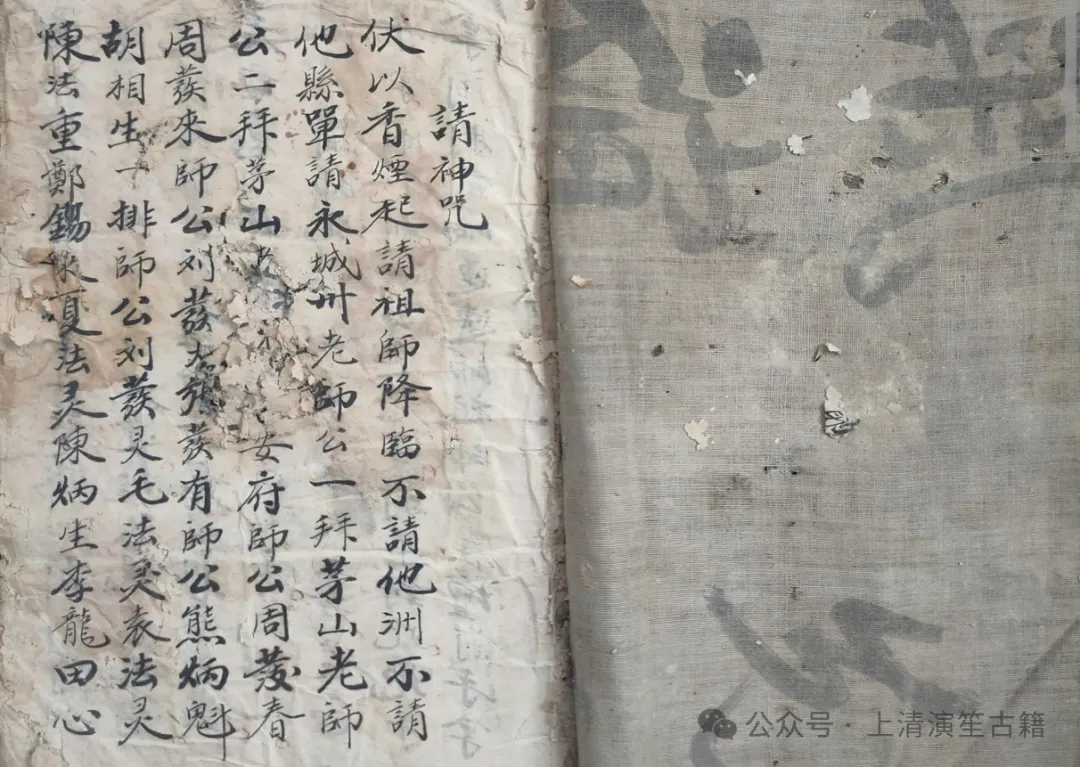 請神咒
伏以香煙起請祖師降臨不請他洲不請
他縣單請永城卅老師公一拜茅山老師
公二拜茅山老安府師公周發春
周發來師公刘發發有師公熊炳魁
胡相生一排師公刘發灵毛法灵袁法灵
陳法重鄭錫夏法灵陳炳生李龍田心
公众号·上清演笙古籍